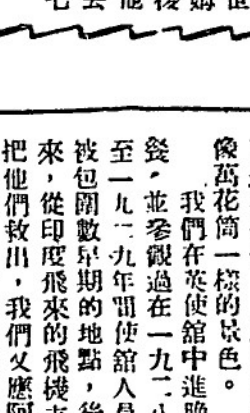 像萬花筒一樣的景色。
我們在英使舘中進晚
餐，並參觀過在一九二八
至一九二九年間使舘人員
被包圍數星期的地點，後
來，從印度飛來的飛機
把他們救出，我們又應阿